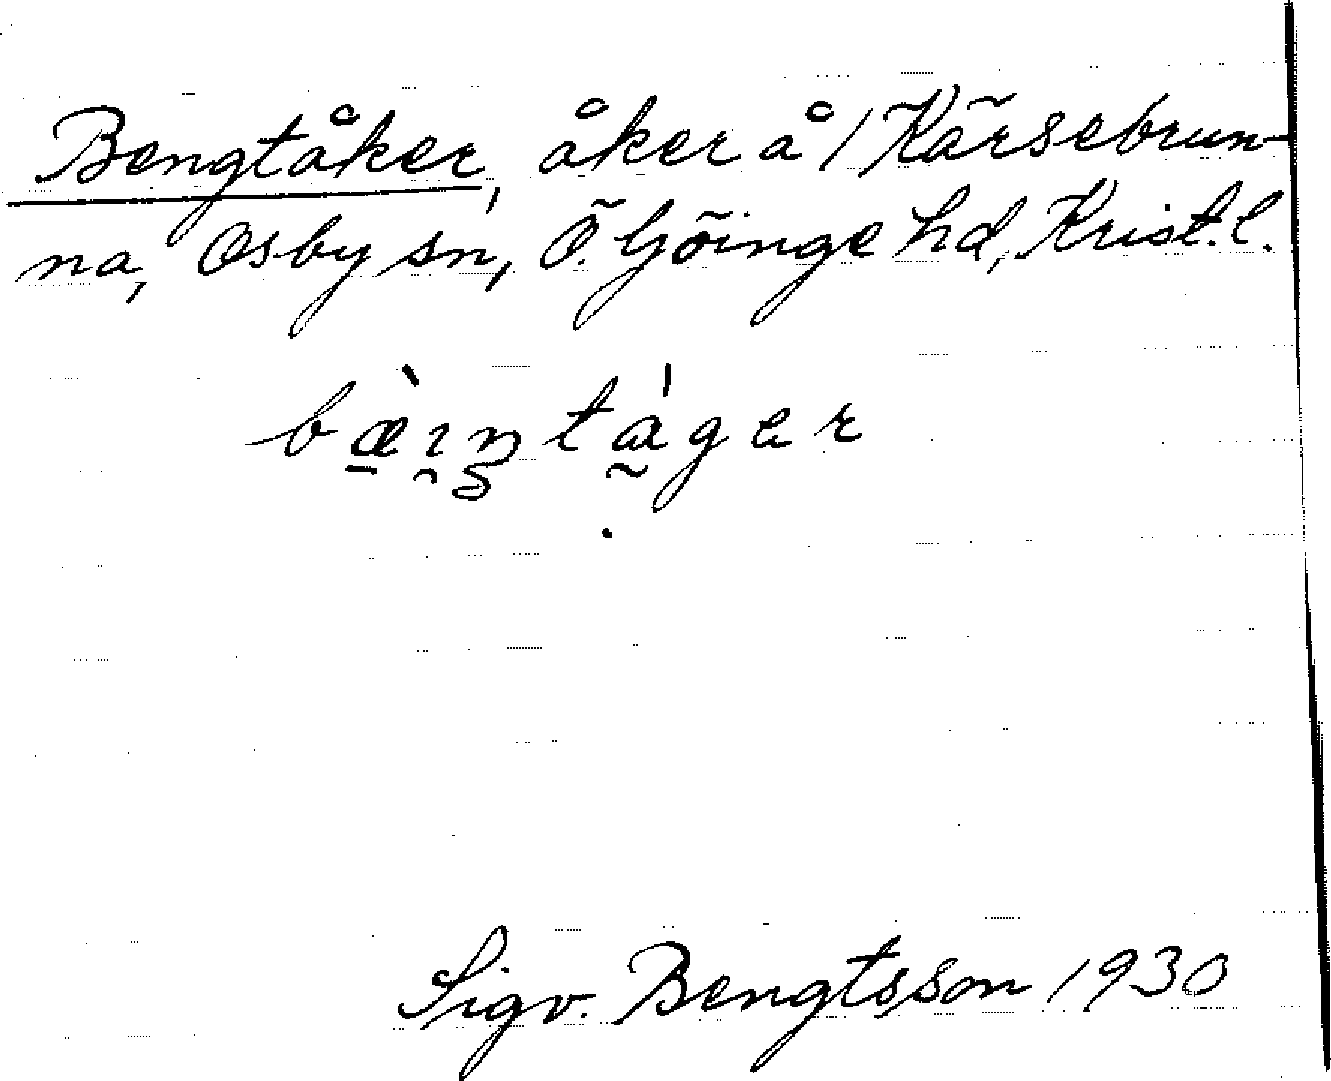 Bengtåker, åker å 1 Kärsebrun-
na, Osby sn, Ö. Göinge hd, Krist. l.
Sigv. Bengtsson 1930